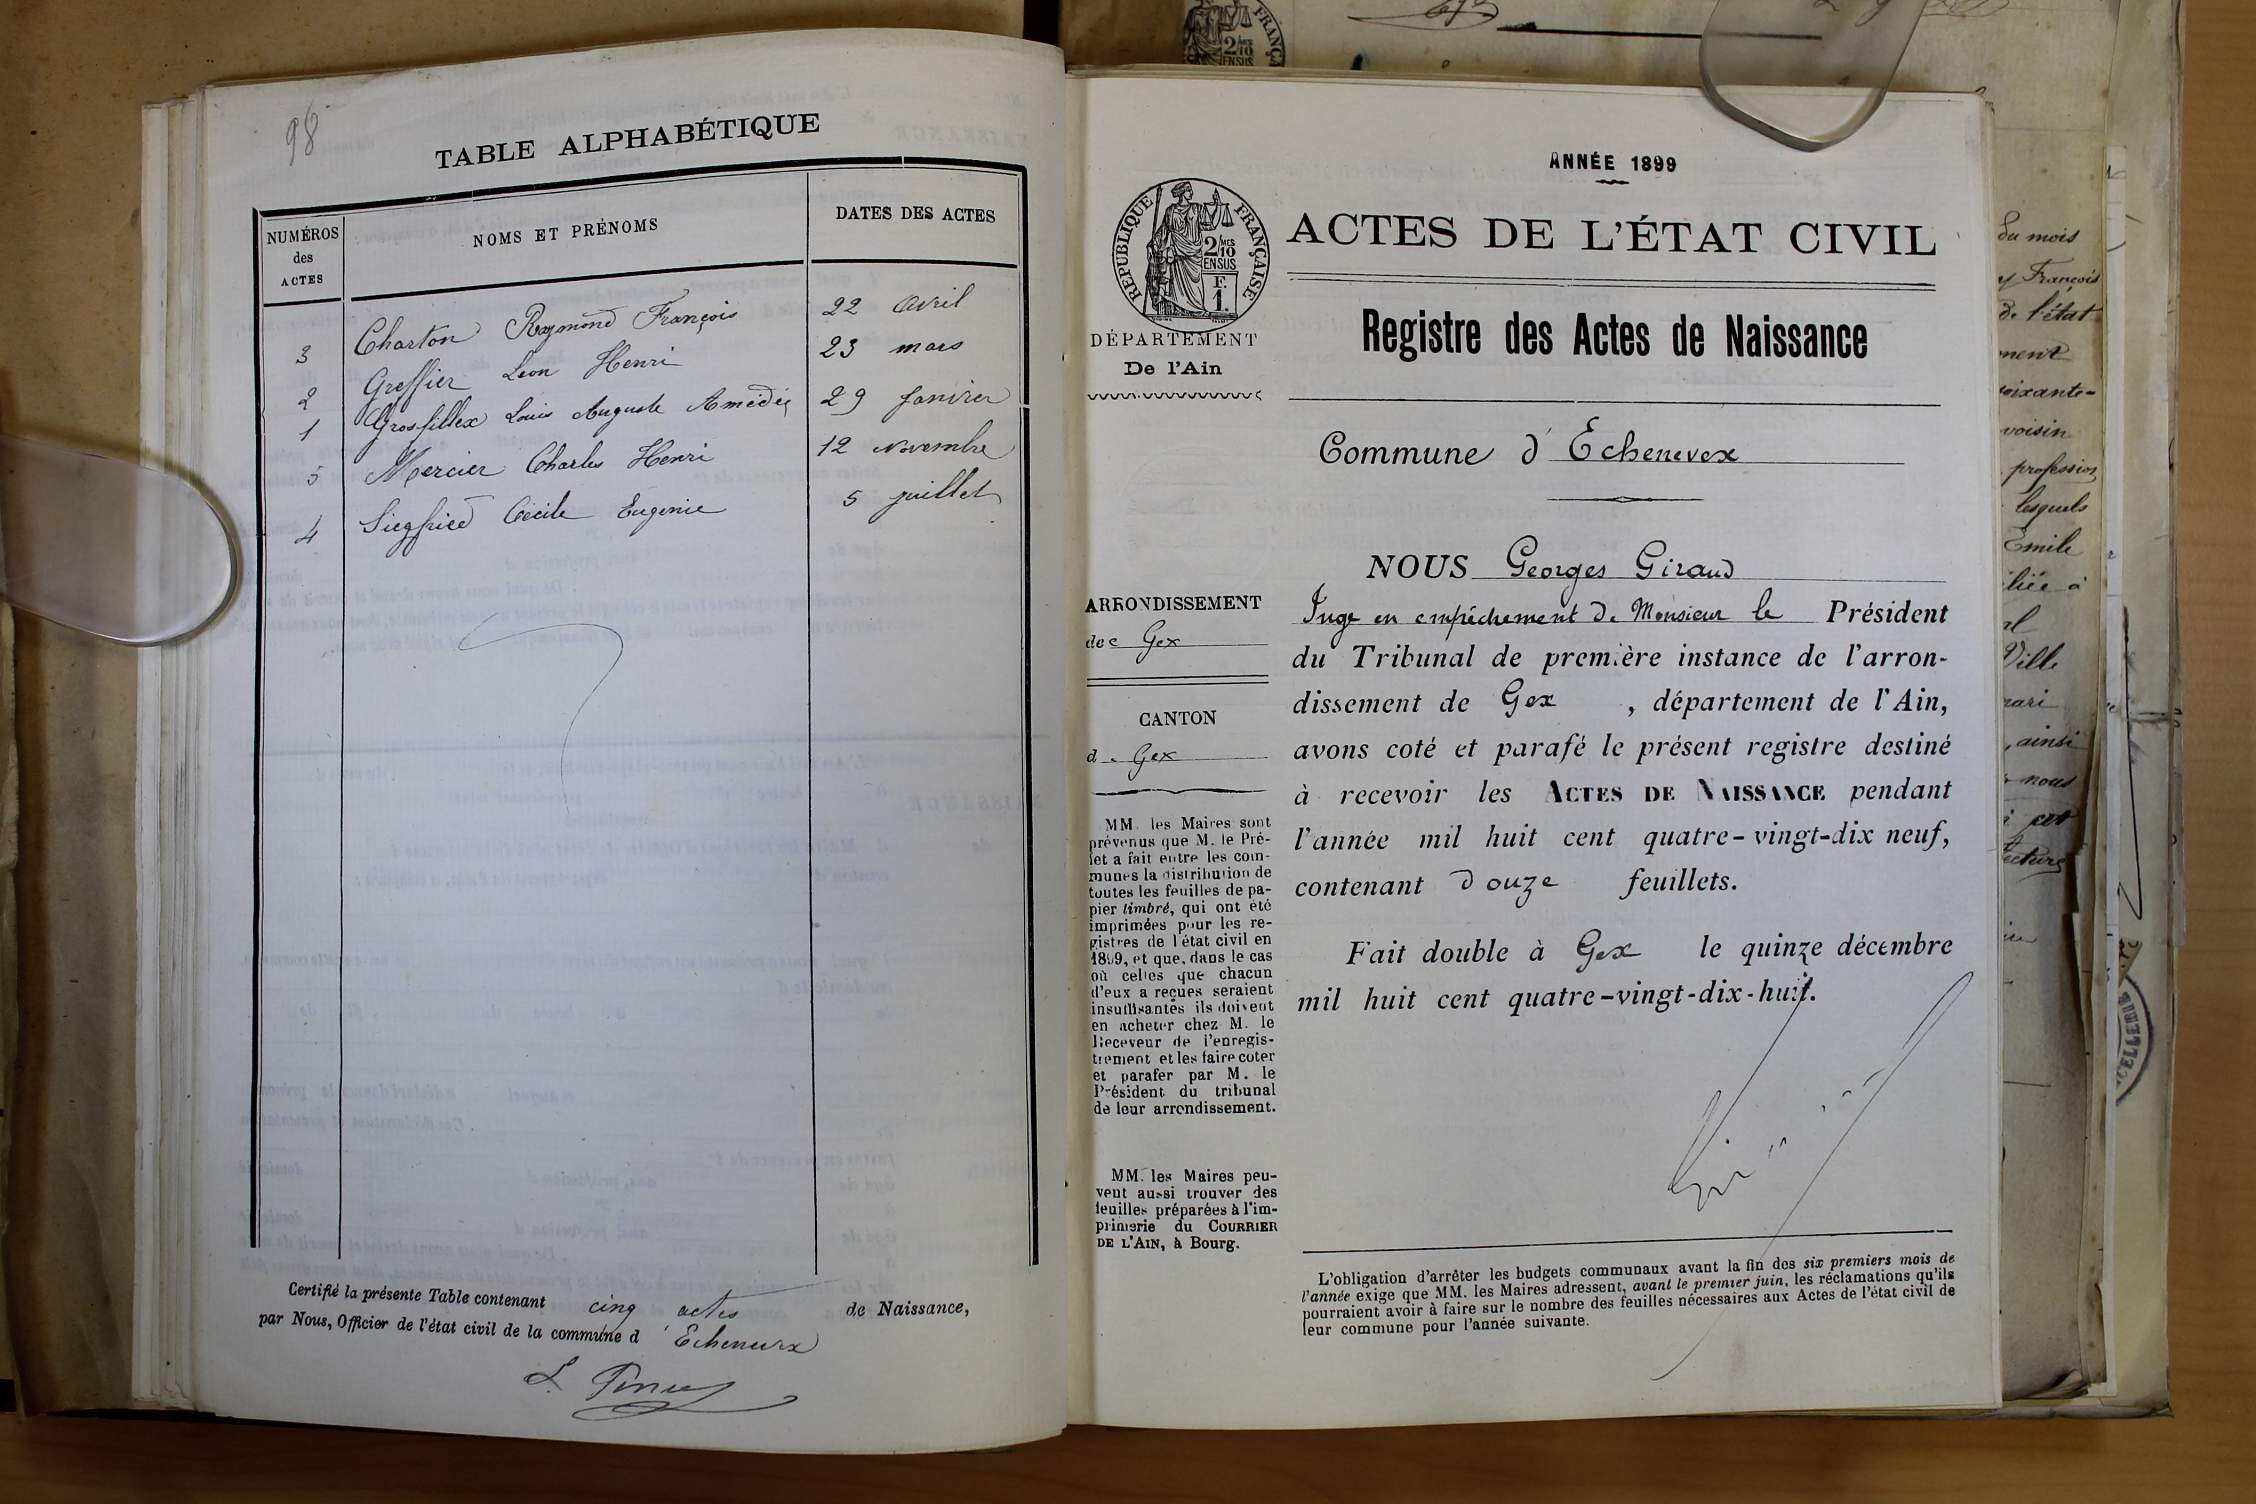 98
TABLE ALPHABÉTIQUE
NUMÉROS des ACTES
NOMS ET PRÉNOMS
DATES DES ACTES
3 Charton Raymond François 22 Avril
2 Greffier Léon Henri 23 mars
1 Grosfillex Louis Auguste Amédée 29 Janvier
5 Mercier Charles Henri 12 Novembre
4 Siegfried Cécile Eugenie 5 juillet
Certifié la présente Table contenant cinq actes de Naissance,
par Nous, Officier de l'état civil de la commune d'Echenevex
ANNÉE 1899
RÉPUBLIQUE FRANÇAISE
2/10 MES
EN SUS
F. 1.
ACTES DE L'ÉTAT CIVIL
DÉPARTEMENT
De l'Ain
Registre des Actes de Naissance
Commune d'Echenevex
ARRONDISSEMENT
de Gex
CANTON
d. Gex
MM. les Maires sont
prévenus que M. le Pré-
fet a fait entre les com-
munes la distribution de
toutes les feuilles de pa-
pier timbré, qui ont été
imprimées pour les re-
gistres de l'état civil en
1899, et que, dans le cas
où celles que chacun
d'eux a reçues seraient
insuffisantes ils doivent
en acheter chez M. le
Receveur de l'enregis-
trement et les faire coter
et parafer par M. le
Président du tribunal
de leur arrondissement.
MM. les Maires peu-
vent aussi trouver des
feuilles préparées à l'im-
primerie du COURRIER
DE L'AIN, à Bourg.
NOUS Georges Giraud
Juge en empêchement de Monsieur le Président
du Tribunal de première instance de l'arron-
dissement de Gex , département de l'Ain,
avons coté et parafé le présent registre destiné
à recevoir les ACTES DE NAISSANCE pendant
l'année mil huit cent quatre-vingt-dix neuf,
contenant douze feuillets.
Fait double à Gex le quinze décembre
mil huit cent quatre-vingt-dix-huit.
L'obligation d'arrêter les budgets communaux avant la fin des six premiers mois de
l'année exige que MM. les Maires adressent, avant le premier juin, les réclamations qu'ils
pourraient avoir à faire sur le nombre des feuilles nécessaires aux Actes de l'état civil de
leur commune pour l'année suivante.
du mois
François
de l'état
voisin
profession
lesquels
Emile
Ville
, ainsi
nous